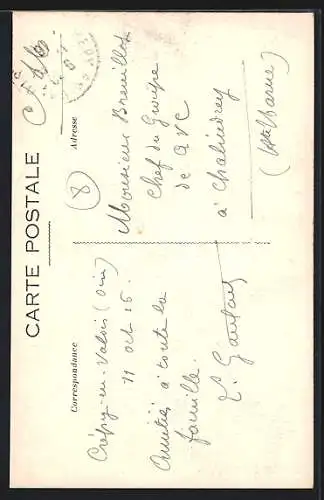 CARTE POSTALE
Correspondance
Adresse
Crépy-en-Valois (Oise)
11 oct 15.
Amitiés à toute la
famille.
L. Gautard
8
Monsieur Breuillot
Chef du Groupe
de GVC
à Chalindrey
(Hte Marne)